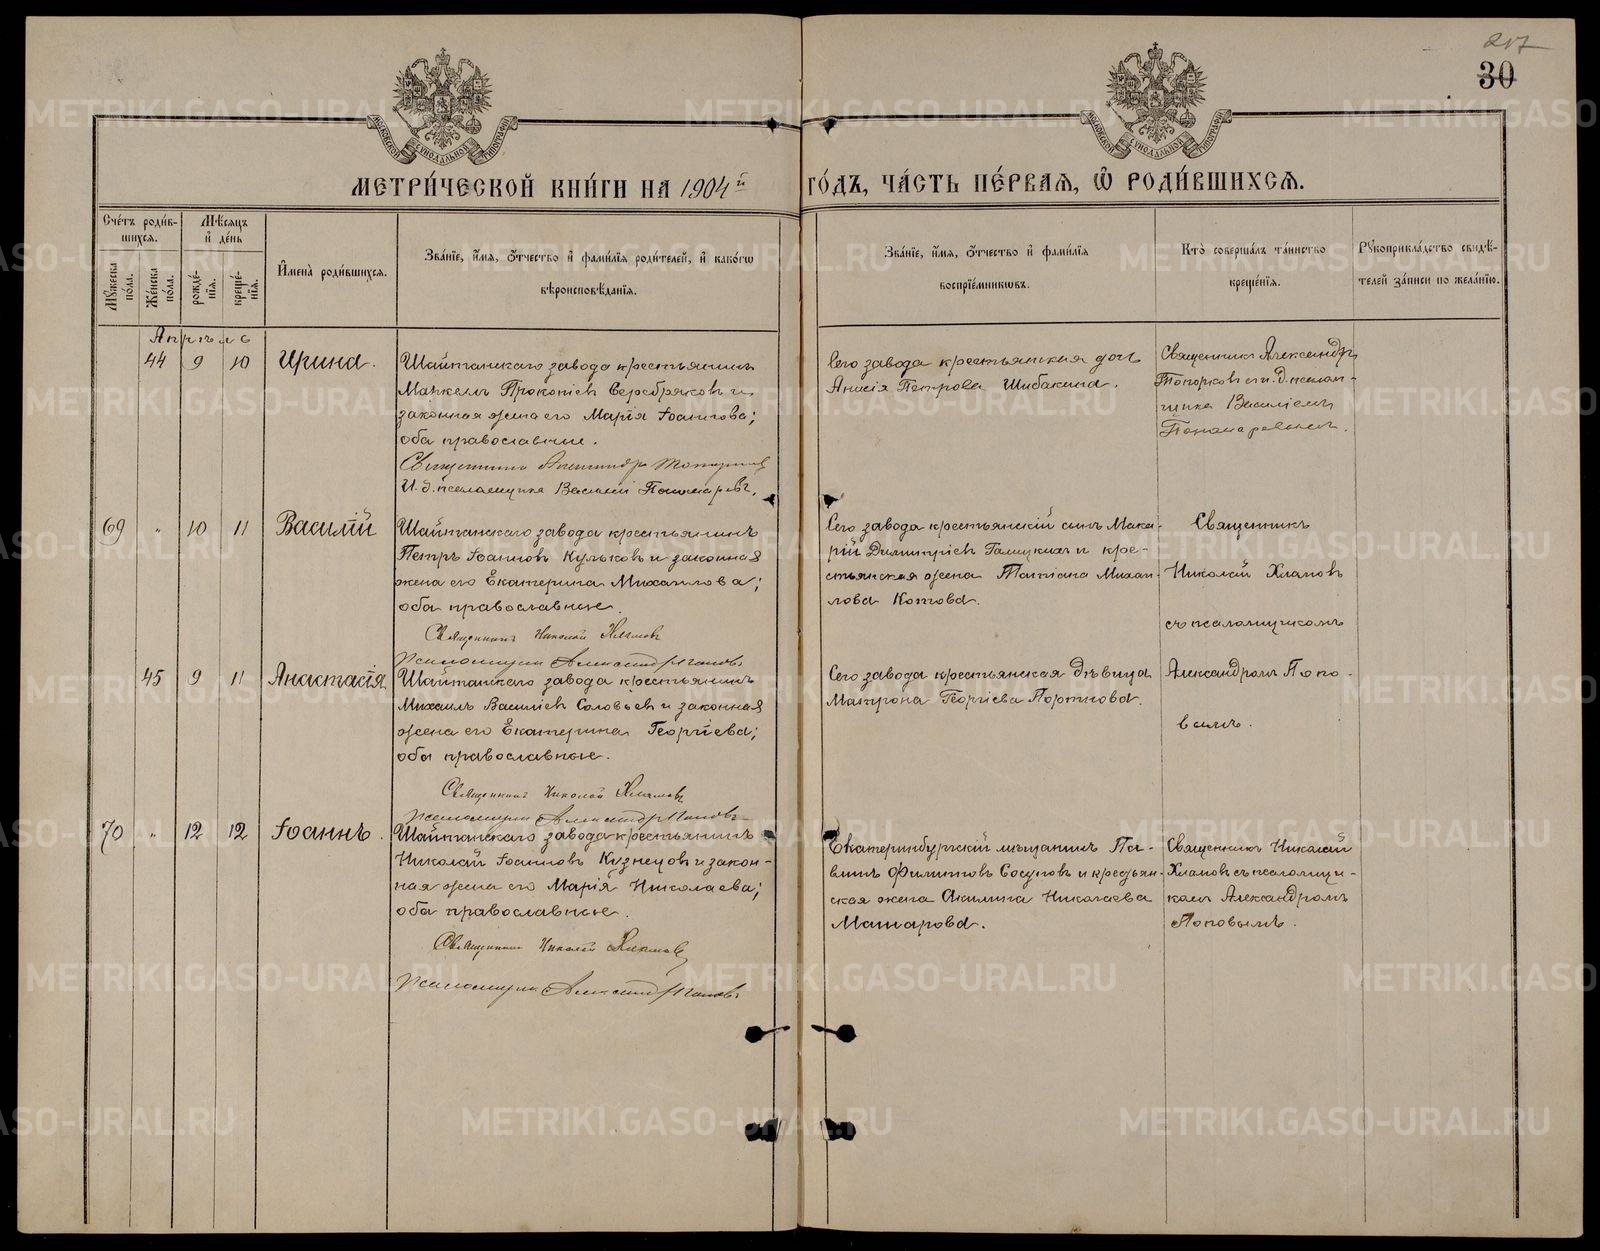 217
30
МОСКОВСКОЙ СѴНОДАЛЬНОЙ ТИПОГРАФІИ
МОСКОВСКОЙ СѴНОДАЛЬНОЙ ТИПОГРАФІИ
МЕТРИ́ЧЕСКОЙ КНИ́ГИ НА 1904й ГО́ДЪ, ЧА́СТЬ ПЕ́РВАѦ, Ѡ҆ РОДИ́ВШИХСѦ.
Сче́тъ роди́в-
шихсѧ.
Мѣ́сѧцъ
и҆ де́нь
Мꙋ́жеска по́ла.
Же́нска по́ла.
рожде́-
нїѧ.
креще́-
нїѧ.
И҆мена̀ роди́вшихсѧ.
Зва́нїе, и҆́мѧ, ѻ҆́тчество и҆ фами́лїѧ роди́телей, и҆ како́гѡ
вѣроисповѣ́данїѧ.
Зва́нїе, и҆́мѧ, ѻ҆́тчество и҆ фами́лїѧ
воспрїе́мникѡвъ.
Кто̀ соверша́лъ та́инство
креще́нїѧ.
Рꙋкоприкла́дство свидѣ́-
телей за́писи по жела́нїю.
Апрѣль
44 9 10 Ирина.
Шайтанскаго завода крестьянинъ
Маркелъ Прокопіевъ Серебряковъ и
законная жена его Марія Іоаннова;
оба православные.
Священникъ Александръ Топорковъ
И. д. псаломщика Василій Пономаревъ.
Сего завода крестьянская дочь
Анисія Петрова Шибакина.
Священникъ Александръ
Топорковъ с и. д. псалом-
щика Василіемъ
Пономаревымъ.
69 " 10 11 Василій
Шайтанскаго завода крестьянинъ
Петръ Іоанновъ Кульковъ и законная
жена его Екатерина Михаилова;
оба православные.
Священникъ Николай Хламовъ
Псаломщикъ Александръ Поповъ
Сего завода крестьянскій сынъ Мака-
рій Димитріевъ Галицкихъ и кре-
стьянская жена Татіана Михаи-
лова Котова.
Священникъ
Николай Хламовъ
съ псаломщикомъ
45 9 11 Анастасія
Шайтанскаго завода крестьянинъ
Михаилъ Василіевъ Соловьевъ и законная
жена его Екатерина Георгіева;
оба православные.
Священникъ Николай Хламовъ
Псаломщикъ Александръ Поповъ
Сего завода крестьянская дѣвица
Матрона Георгіева Портнова.
Александромъ Попо-
вымъ.
70 " 12 12 Іоаннъ.
Шайтанскаго завода крестьянинъ
Николай Іоанновъ Кузнецовъ и закон-
ная жена его Марія Николаева;
оба православные.
Священникъ Николай Хламовъ
Псаломщикъ Александръ Поповъ
Екатеринбургскій мѣщанинъ Па-
велъ Филиповъ Сосуновъ и крестьян-
ская жена Акилина Николаева
Макарова.
Священникъ Николай
Хламовъ съ псаломщи-
комъ Александромъ
Поповымъ.
METRIKI.GASO-URAL.RU